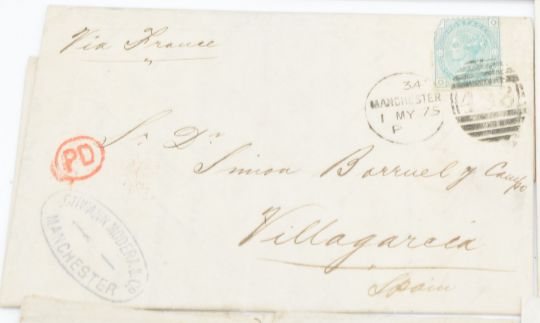 Via France
34
MANCHESTER
1 MY 75
P
498
PD
Sr. Dn.
Simon Borruel y Campo
Villagarcia
Spain
& Co
MANCHESTER